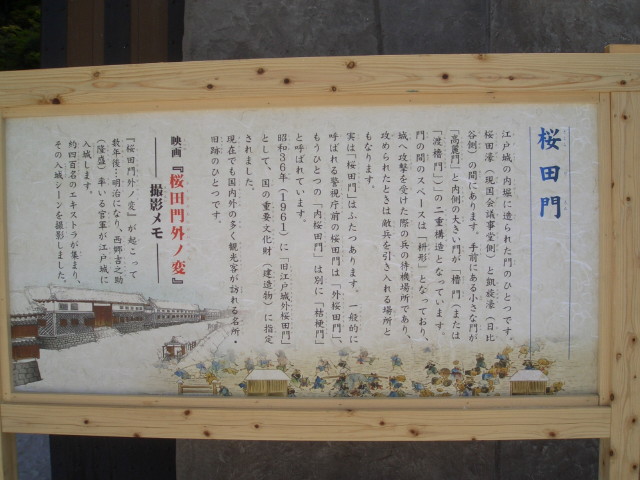 桜田門
江戸城の内堀に造られた門のひとつです。
桜田濠（現国会議事堂側）と凱旋濠（日比
谷側）の間にあります。手前にある小さな門が
「高麗門」と内側の大きい門が「櫓門（または
「渡櫓門」）」の二重構造となっています。
門の間のスペースは「枡形」となっており、
城へ攻撃を受けた際の兵の待機場所であり、
攻められたときは敵兵を引き入れる場所と
もなります。
実は「桜田門」はふたつあります。一般的に
呼ばれる警視庁前の桜田門は「外桜田門」、
もうひとつの「内桜田門」は別に「桔梗門」
と呼ばれています。
昭和36年（1961）に「旧江戸城外桜田門」
として、国の重要文化財（建造物）に指定
されました。
現在でも国内外の多く観光客が訪れる名所・
旧跡のひとつです。
映画『桜田門外ノ変』
――撮影メモ――
『桜田門外ノ変』が起こって
数年後…明治になり、西郷吉之助
（隆盛）率いる官軍が江戸城に
入城します。
約四百名のエキストラが集まり、
その入城シーンを撮影しました。